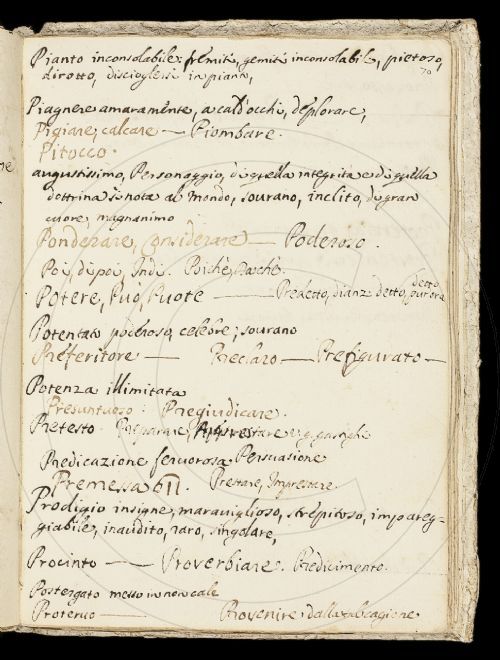 Pianto inconsolabile: fremiti, gemiti inconsolabile, pietoso,
dirotto, disciogliersi in pianti,
70
Piagnere amaramente, a cald'occhi, deplorare,
Pigiare, calcare — Piombare.
Pitocco.
augustissimo, Personaggio, di quella integrità e di quella
dottrina sì nota al Mondo, sourano, inclito, di gran
cuore, magnanimo
Ponderare, considerare — Poderoso.
Poi, di poi, Indi. Poichè, Dacchè.
Potere, Può, Puote — Predetto, dianzi detto, detto pur ora
Potentato poderoso, celebre; sourano
Prefferitore — Preclaro — Prefigurato —
Potenza illimitata
Presuntuoso: Pregiudicare.
Pretesto Preparare,
Predicazione feruorosa Persuasione
Premessa 611. Prestare, Imprestare.
Prodigio insigne, marauiglioso, strepitoso, impareg-
giabile, inaudito, raro, singolare,
Procinto — Proverbiare. Predicimento.
Postergato messo in non cale
Proteruo — Provenire, dalla cagione